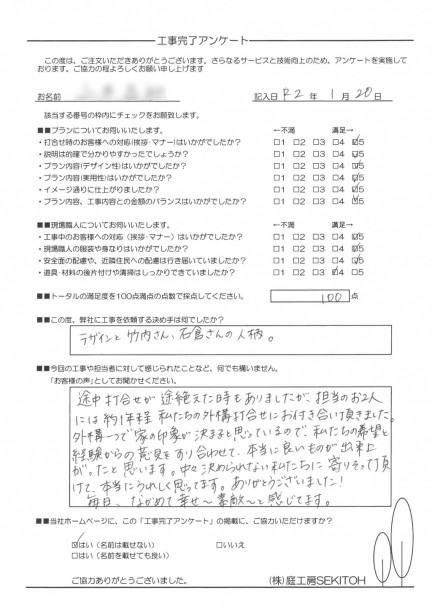 工事完了アンケート
この度は、ご注文いただきありがとうございます。さらなるサービスと技術向上のため、アンケートを実施して
おります。ご協力の程よろしくお願い申し上げます
お名前 記入日 R2 年 1 月 20 日
該当する番号の枠内にチェックをお願致します。
■■プランについてお伺いいたします。 ←不満 満足→
・打合せ時のお客様への対応(挨拶・マナー)はいかがでしたか? □1 □2 □3 □4 ☑5
・説明は的確で分かりやすかったでしょうか? □1 □2 □3 □4 ☑5
・プラン内容(デザイン性)はいかがでしたか? □1 □2 □3 □4 ☑5
・プラン内容(実用性)はいかがでしたか? □1 □2 □3 □4 ☑5
・イメージ通りに仕上がりましたか? □1 □2 □3 □4 ☑5
・プラン内容、工事内容との金額のバランスはいかがですか? □1 □2 □3 □4 ☑5
■■現場職人についてお伺いいたします。 ←不満 満足→
・工事中のお客様への対応(挨拶・マナー)はいかがでしたか? □1 □2 □3 □4 ☑5
・現場職人の服装や身なりはいかがでしたか? □1 □2 □3 □4 ☑5
・安全面の配慮や、近隣住民への配慮は行き届いていましたか? □1 □2 □3 □4 ☑5
・道具・材料の後片付けや清掃はしっかりできていましたか? □1 □2 □3 ☑4 □5
■■トータルの満足度を100点満点の点数で採点してください。 100 点
■■この度、弊社に工事を依頼する決め手は何でしたか?
デザインと竹内さん、石倉さんの人柄。
■■今回の工事や担当者に対して感じられたことなど、何でも構いません。
「お客様の声」としてお聞かせください。
途中打合せが途絶えた時もありましたが、担当のお2人
には約1年程私たちの外構打合せにお付き合い頂きました。
外構一つで家の印象が決まると思っているので、私たちの希望と
経験からの意見をすり合わせて、本当に良いものが出来上
がったと思います。中々決められない私たちに寄りそって頂
けて、本当にうれしく思ってます。ありがとうございました!
毎日、ながめて幸せ～素敵～と感じてます。
■■当社ホームページに、この「工事完了アンケート」の掲載に、ご協力いただけますか?
☑はい(名前は載せない) □いいえ
□はい(名前を載せても良い)
ご協力ありがとうございました。 (株)庭工房SEKITOH